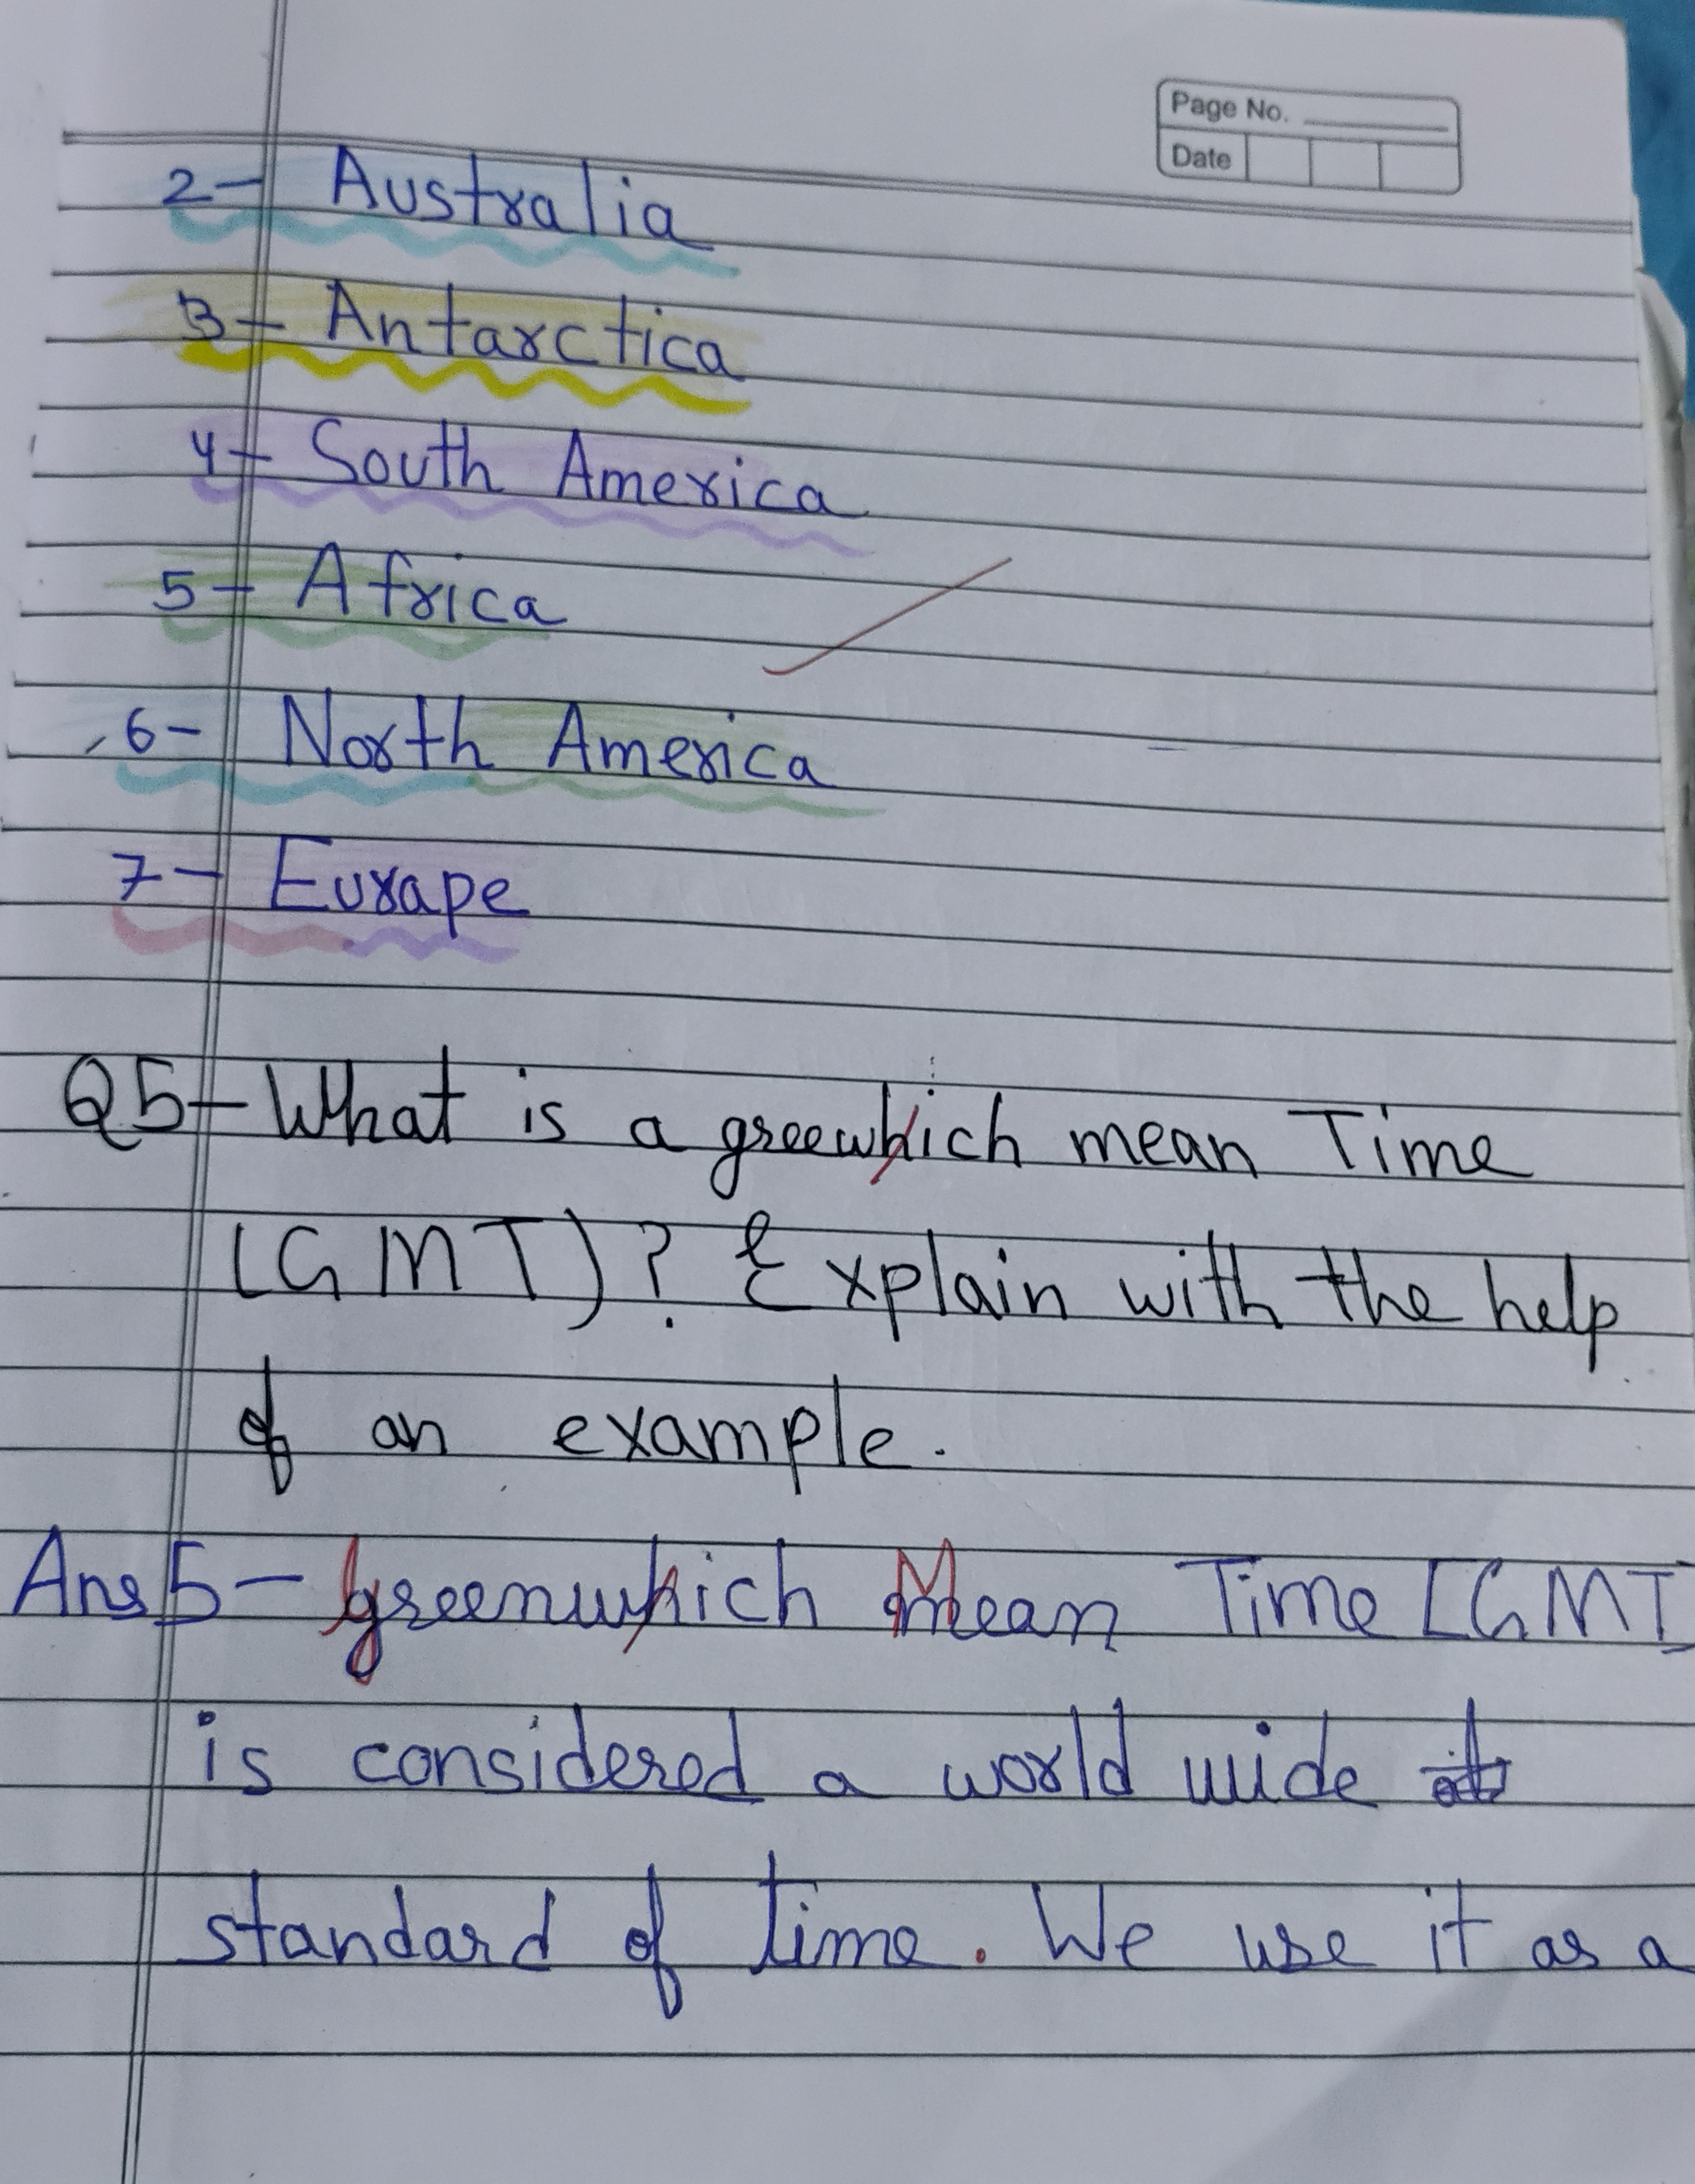 Page No.
Date
2- Australia
3- Antarctica
4- South America
5- Africa
6- North America
7- Eurape
Q5- What is a greewhich mean Time
(GMT)? Explain with the help
of an example.
Ans 5- Greenwhich Mean Time [GMT]
is considered a world wide
standard of time. We use it as a